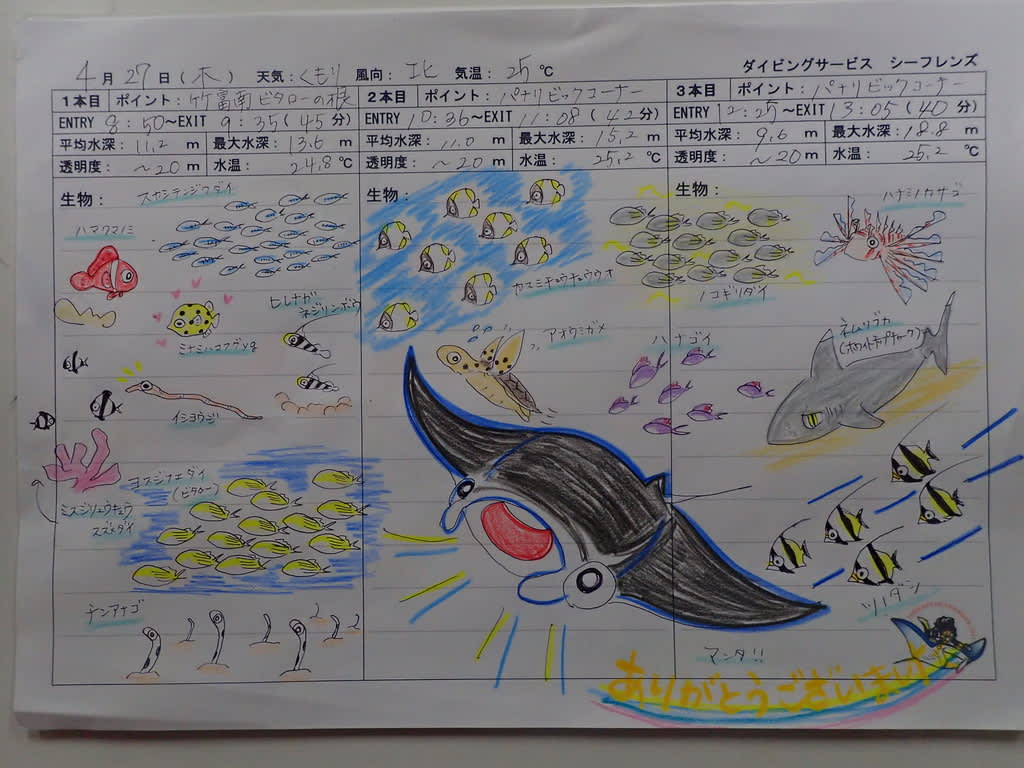 ダイビングサービス シーフレンズ
4月27日(木) 天気:くもり 風向:北 気温:25℃
1本目 ポイント:竹富南ビタローの根
ENTRY 8:50~EXIT 9:35(45分)
平均水深:11.2m 最大水深:13.6m
透明度:~20m 水温:24.8℃
生物:
スカシテンジクダイ
ハマクマノミ
ミナミハコフグyg
ヒレナガ
ネジリンボウ
イシヨウジ
ヨスジフエダイ
(ビタロー)
ミスジリュウキュウ
スズメダイ
チンアナゴ
2本目 ポイント:パナリビックコーナー
ENTRY 10:36~EXIT 11:08(42分)
平均水深:11.0m 最大水深:15.2m
透明度:~20m 水温:25.2℃
生物:
カスミチョウチョウウオ
アオウミガメ
3本目 ポイント:パナリビックコーナー
ENTRY 12:25~EXIT 13:05(40分)
平均水深:9.6m 最大水深:18.8m
透明度:~20m 水温:25.2℃
生物:
ハナミノカサゴ
ノコギリダイ
ハナゴイ
ネムリブカ
(ホワイトチップシャーク)
ツノダシ
マンタ!!
ありがとうございました